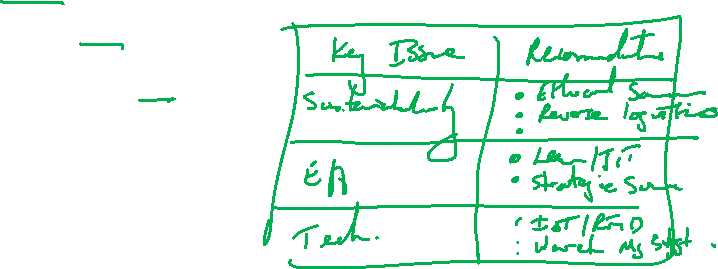 Key Issue
Recommendations
Sustainability
• Ethical Source
• Reverse logistics
•
EA
• Lean/JIT
• Strategic Source
Tech.
: IoT/RFID
: Wareh Mg Syst.